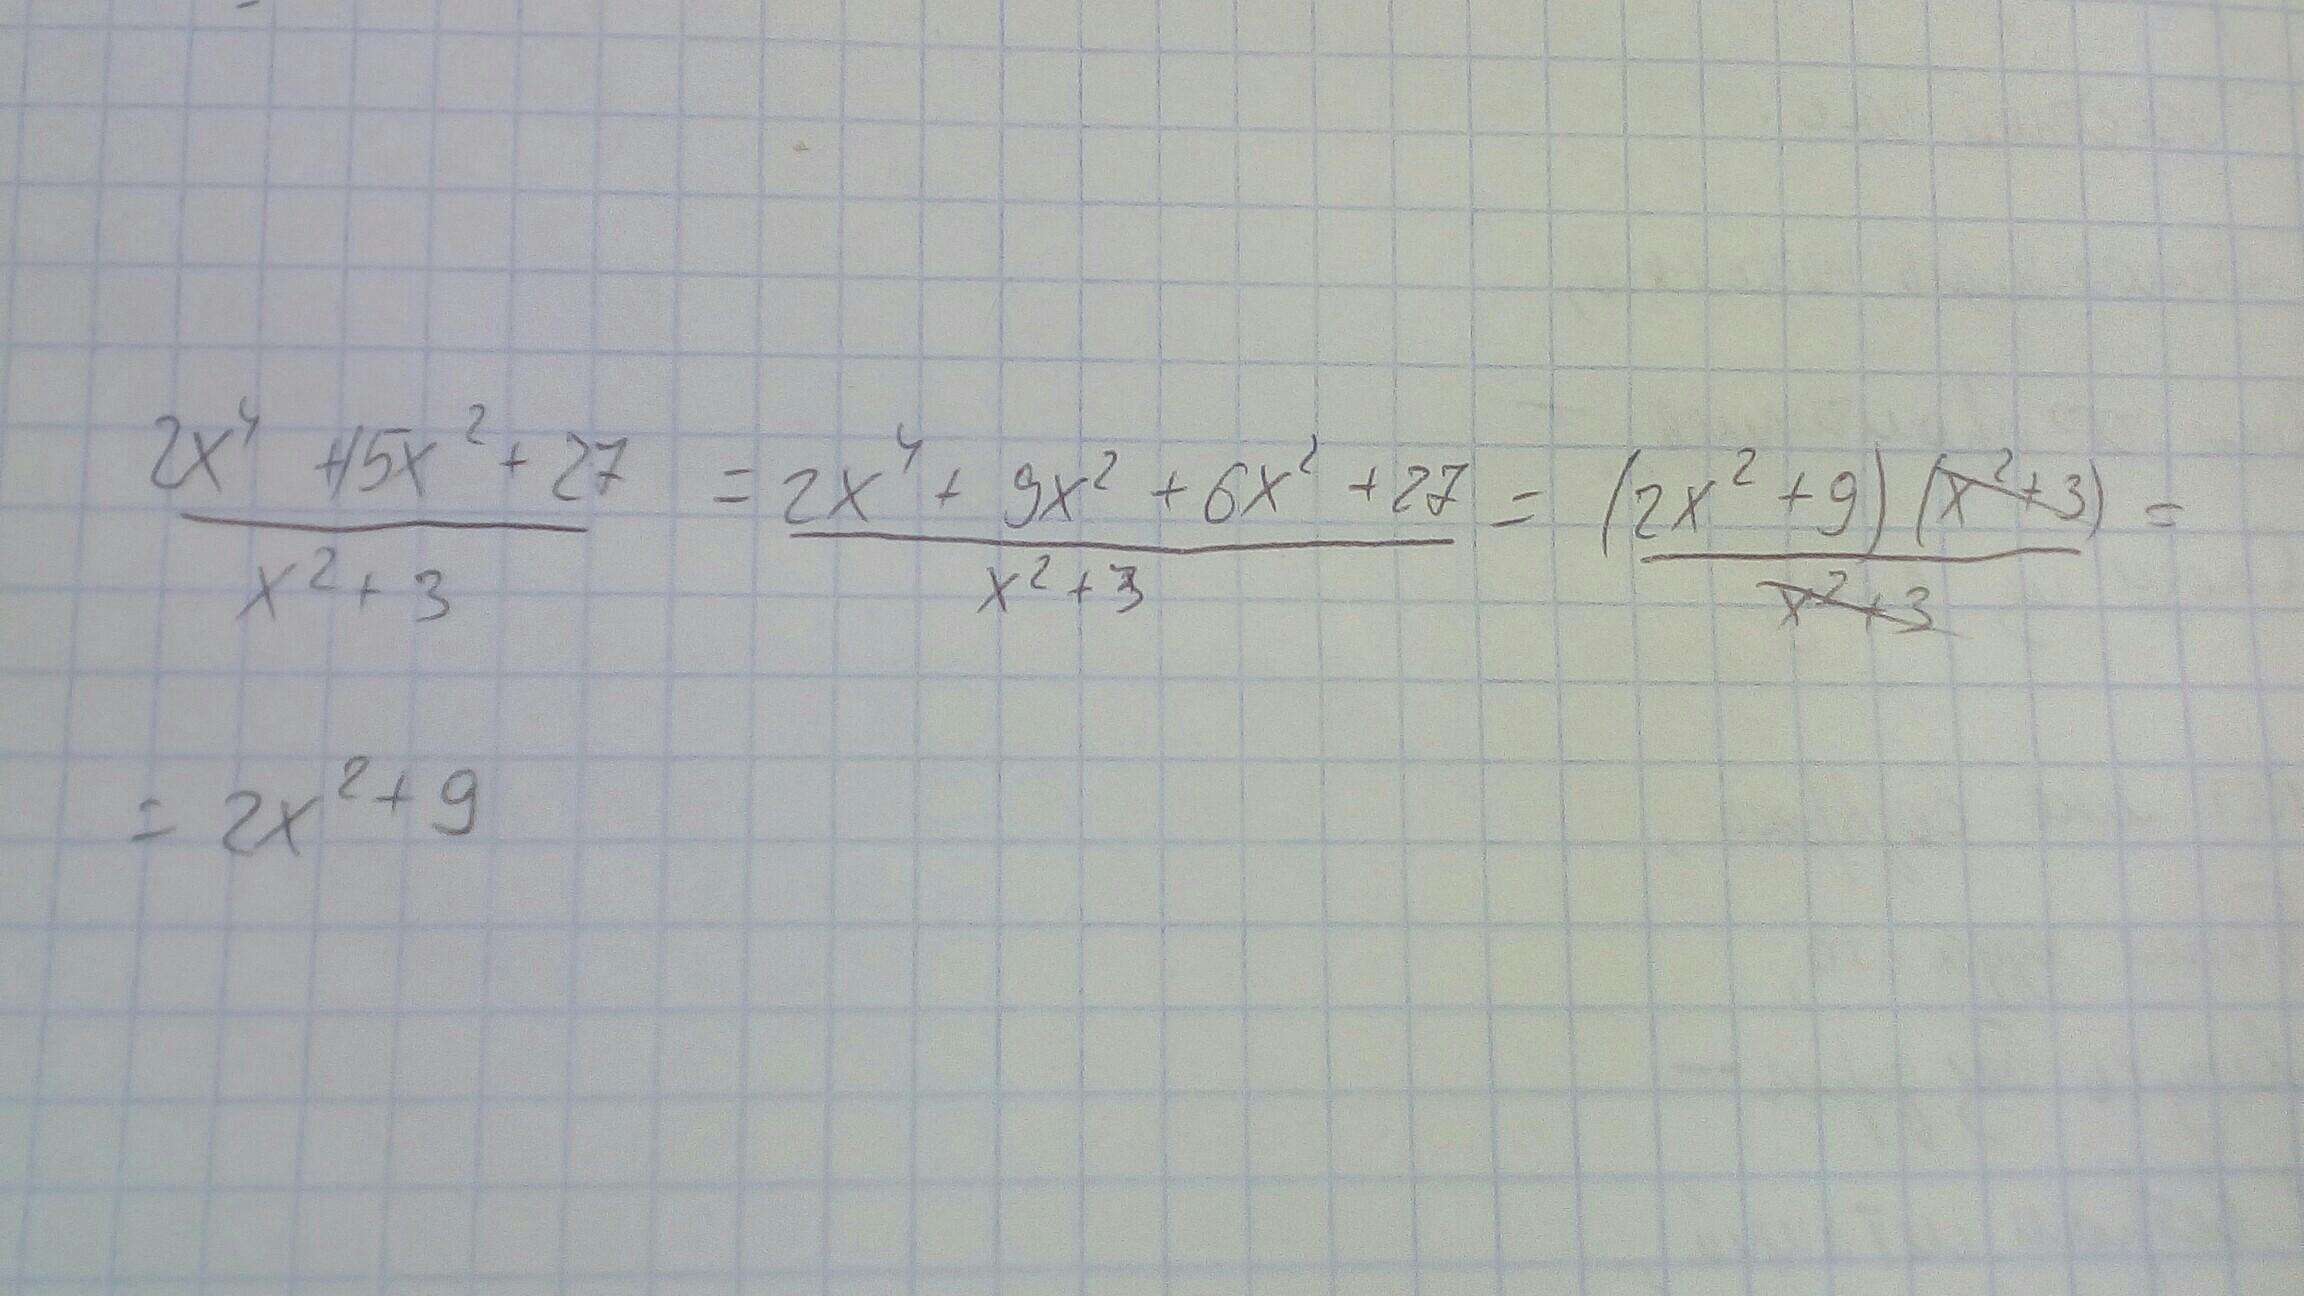 (2x⁴ + 15x² + 27)/(x² + 3) = (2x⁴ + 9x² + 6x² + 27)/(x² + 3) = ((2x² + 9)(x² + 3))/(x² + 3) =
= 2x² + 9